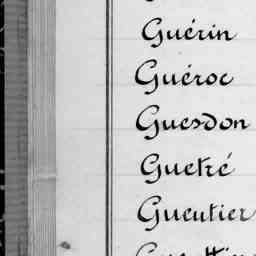 Guérin
Guéroc
Guesdon
Guetré
Gueutier